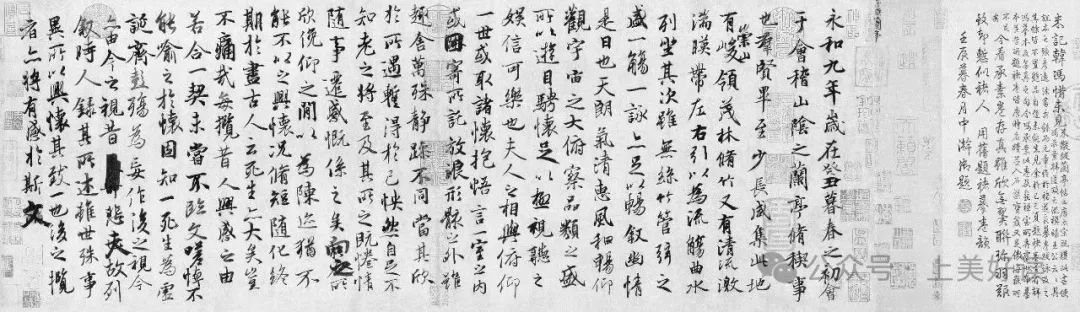 朱記韓馮惜未見
壬辰暮春月中澣御題
永和九年歲在癸丑暮春之初會
于會稽山陰之蘭亭脩稧事
也羣賢畢至少長咸集此地
有崇山峻領茂林脩竹又有清流激
湍暎帶左右引以為流觴曲水
列坐其次雖無絲竹管弦之
盛一觴一詠亦足以暢叙幽情
是日也天朗氣清惠風和暢仰
觀宇宙之大俯察品類之盛
所以遊目騁懷足以極視聽之
娛信可樂也夫人之相與俯仰
一世或取諸懷抱悟言一室之內
或因寄所託放浪形骸之外雖
趣舍萬殊靜躁不同當其欣
於所遇暫得於己怏然自足不
知老之將至及其所之既惓情
隨事遷感慨係之矣向之所
欣俛仰之閒以為陳迹猶不
能不以之興懷況脩短隨化終
期於盡古人云死生亦大矣豈
不痛哉每攬昔人興感之由
若合一契未嘗不臨文嗟悼不
能喻之於懷固知一死生為虛
誕齊彭殤為妄作後之視今
亦由今之視昔悲夫故列
叙時人錄其所述雖世殊事
異所以興懷其致一也後之攬
者亦將有感於斯文
公众号